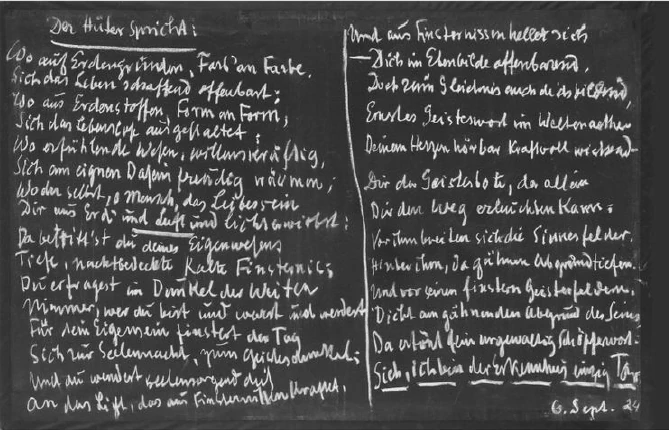 Der Hüter spricht:
Wo auf Erdengründen, Farb' an Farbe,
Sich das Leben schaffend offenbart;
Wo aus Erdenstoffen, Form an Form,
Sich das Lebenslose ausgestaltet;
Wo erfühlende Wesen, willenskräftig,
Sich am eignen Dasein freudig wärmen;
Wo du selbst, o Mensch, das Leibessein
Dir aus Erd' und Luft und Licht erwirbst:
Da betrittst du deines Eigenwesens
Tiefe, nachtbedeckte Kalte Finsternis;
Du erfragest im Dunkel der Weiten
Nimmer, wer du bist und warst und werdest
Für dein Eigensein finstert der Tag
Sich zur Seelennacht, zum Geistesdunkel;
Und du wendest seelensorgend dich
An das Licht, das aus Finsternissen kraftet.
Und aus Finsternissen hellet sich
Dich im Ebenbilde offenbarend,
Doch zum Gleichnis auch dich bildend,
Ernstes Geisteswort im Weltenaether
Deinem Herzen hörbar kraftvoll wirkend
Dir der Geistesbote, der allein
Dir den Weg erleuchten kann;
Vor ihm breiten sich die Sinnesfelder
Hinter ihm, da gähnen Abgrundtiefen.
Und vor seinen finstern Geistesfeldern,
Dicht am gähnenden Abgrund des Seins
Da ertönt sein urgewaltig Schöpferwort:
Sieh, ich bin der Erkenntnis einzig Tor
6. Sept. 24